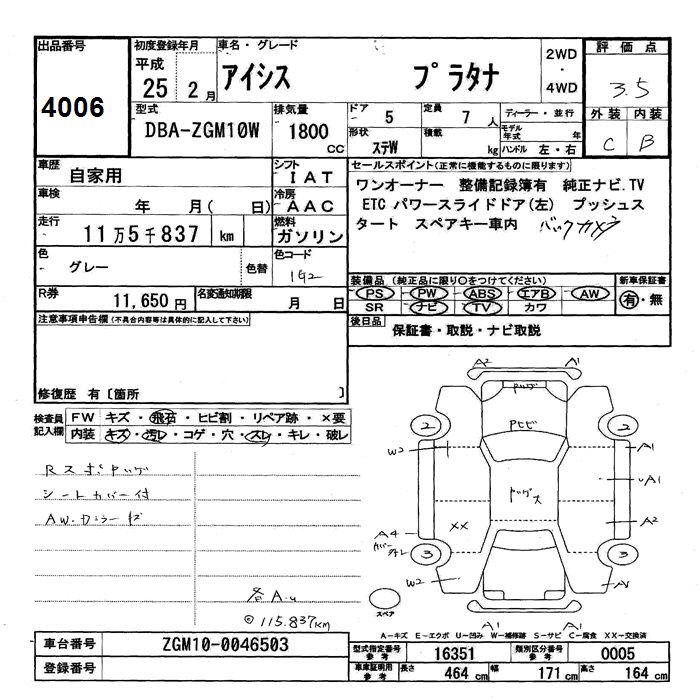 出品番号
4006
初度登録年月
平成
25 2月
車名・グレード
アイシス プラタナ
2WD
・
4WD
評価点
3.5
外装 内装
C B
型式
DBA-ZGM10W
排気量
1800 cc
ドア 5
形状 ステW
定員 7 人
積載 kg
ディーラー・並行
モデル年式 年
ハンドル 左・右
車歴
自家用
シフト
IAT
車検 年 月( 日)
冷房
AAC
走行
11万5千837 km
燃料
ガソリン
色
グレー
色替
色コード
1G2
R券 11,650円
名変通知期限 月 日
セールスポイント(正常に機能するものに限ります)
ワンオーナー 整備記録簿有 純正ナビ.TV
ETC パワースライドドア(左) プッシュス
タート スペアキー車内 バックカメラ
装備品(純正品に限り○をつけてください)
PS PW ABS エアB AW
SR ナビ TV カワ
新車保証書
有・無
後日品
保証書・取説・ナビ取説
注意事項申告欄(不具合内容等は具体的に記入して下さい)
修復歴 有〔箇所 〕
検査員記入欄
FW キズ・飛石・ヒビ割・リペア跡・×要
内装 キズ・汚レ・コゲ・穴・スレ・キレ・破レ
シートカバー付
AW.カラーキズ
各A.u
◎115.837km
A2 A1
2 2
W2 A1
A1
XX A2
A4
3 3
W2
A1 A1
スペア
A－キズ E－エクボ U－凹み W－補修跡 S－サビ C－腐食 XX－交換済
車台番号 ZGM10-0046503
登録番号
型式指定番号 参考 16351
類別区分番号 参考 0005
車庫証明用 参考 長さ 464 cm 幅 171 cm 高さ 164 cm